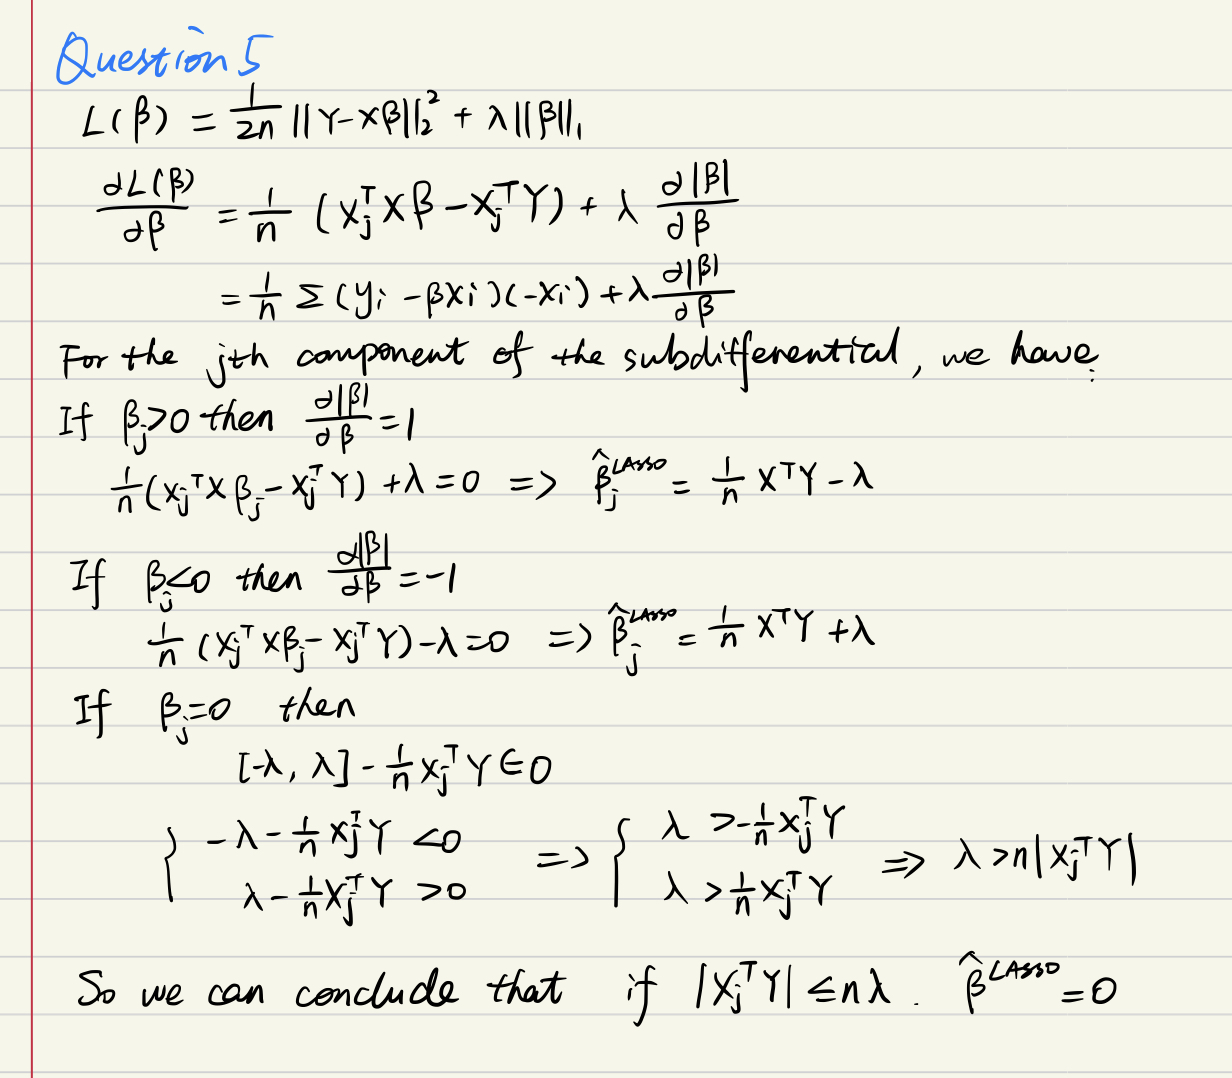 Question 5
L(β) = 1/2n ||Y-Xβ||₂² + λ||β||₁
∂L(β)/∂β = 1/n (Xⱼᵀxβ - XⱼᵀY) + λ ∂|β|/∂β
= 1/n Σ(yᵢ - βxᵢ)(-xᵢ) + λ ∂|β|/∂β
For the jth component of the subdifferential, we have:
If βⱼ>0 then ∂|β|/∂β = 1
1/n(XⱼᵀXβⱼ - XⱼᵀY) + λ = 0 => β̂ⱼᴸᴬˢˢᴼ = 1/n XᵀY - λ
If βⱼ<0 then ∂|β|/∂β = -1
1/n (XⱼᵀXβⱼ - XⱼᵀY) - λ = 0 => β̂ⱼᴸᴬˢˢᴼ = 1/n XᵀY + λ
If βⱼ=0 then
[-λ, λ] - 1/n XⱼᵀY ∈ 0
{ -λ - 1/n XⱼᵀY < 0 => { λ > -1/n XⱼᵀY => λ > n|XⱼᵀY|
λ - 1/n XⱼᵀY > 0 λ > 1/n XⱼᵀY
So we can conclude that if |XⱼᵀY| ≤ nλ. β̂ᴸᴬˢˢᴼ = 0